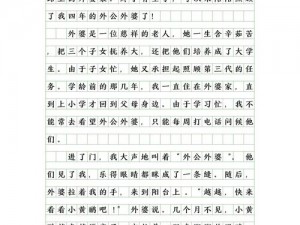 了我四年的外公外婆了！
外婆是一位慈祥的老人，她一生含辛茹苦
，把三个子女抚养大，还把他们培养成了大学
生。由于子女忙，她又承担起照顾第三代的任
务。学龄前的那几年，我一直住在外婆家，直
到上小学才回到父母身边。由于学习忙，我不
能常去看望外公外婆，只能每周打电话问候他
们。
进了门，我大声地叫着“外公外婆”。他
们见了我，乐得眼睛都眯成了一条线。随后，
外婆拉着我的手，来到阳台上。“越越，快来
看看小黄鹂吧！”外婆说。几个月不见，小黄